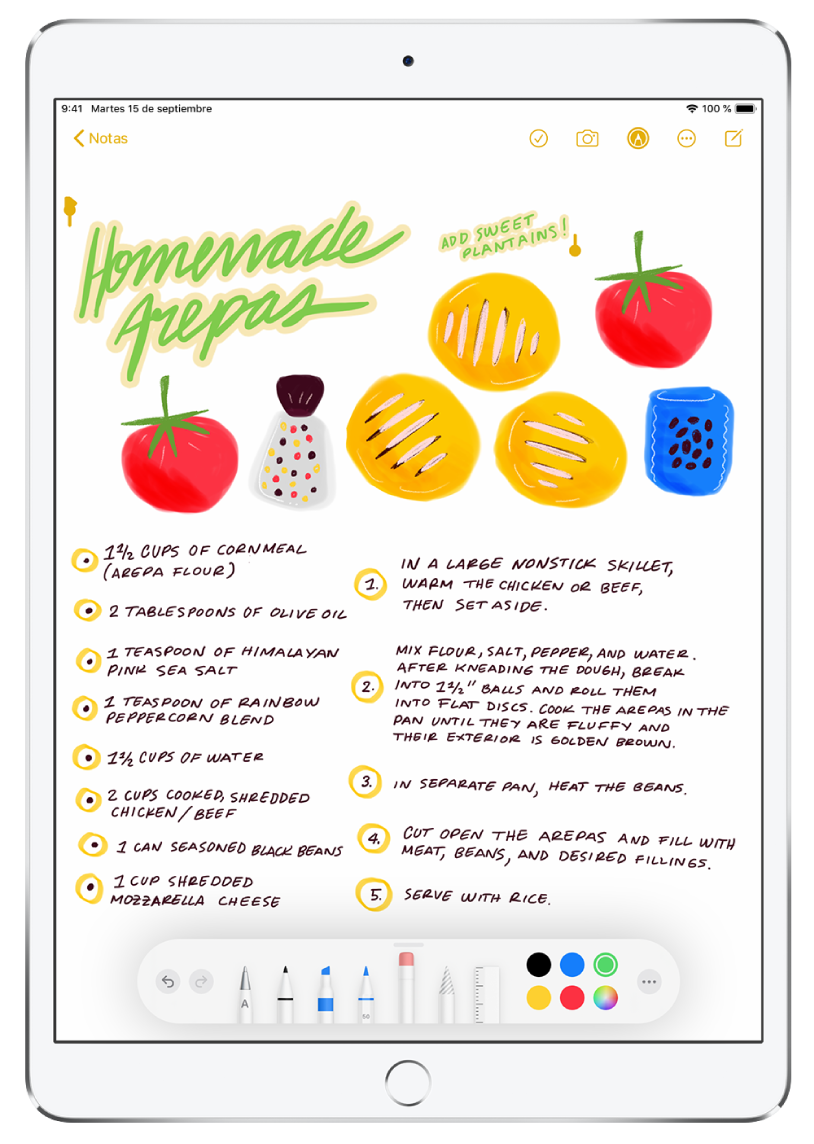 9:41 Martes 15 de septiembre
100 %
Notas
Homemade
Arepas
ADD SWEET
PLANTAINS!
1 1/2 CUPS OF CORNMEAL
(AREPA FLOUR)
2 TABLESPOONS OF OLIVE OIL
1 TEASPOON OF HIMALAYAN
PINK SEA SALT
1 TEASPOON OF RAINBOW
PEPPERCORN BLEND
1 1/2 CUPS OF WATER
2 CUPS COOKED, SHREDDED
CHICKEN/BEEF
1 CAN SEASONED BLACK BEANS
1 CUP SHREDDED
MOZZARELLA CHEESE
1. IN A LARGE NONSTICK SKILLET,
WARM THE CHICKEN OR BEEF,
THEN SET ASIDE.
2. MIX FLOUR, SALT, PEPPER, AND WATER.
AFTER KNEADING THE DOUGH, BREAK
INTO 1 1/2" BALLS AND ROLL THEM
INTO FLAT DISCS. COOK THE AREPAS IN THE
PAN UNTIL THEY ARE FLUFFY AND
THEIR EXTERIOR IS GOLDEN BROWN.
3. IN SEPARATE PAN, HEAT THE BEANS.
4. CUT OPEN THE AREPAS AND FILL WITH
MEAT, BEANS, AND DESIRED FILLINGS.
5. SERVE WITH RICE.
A
50